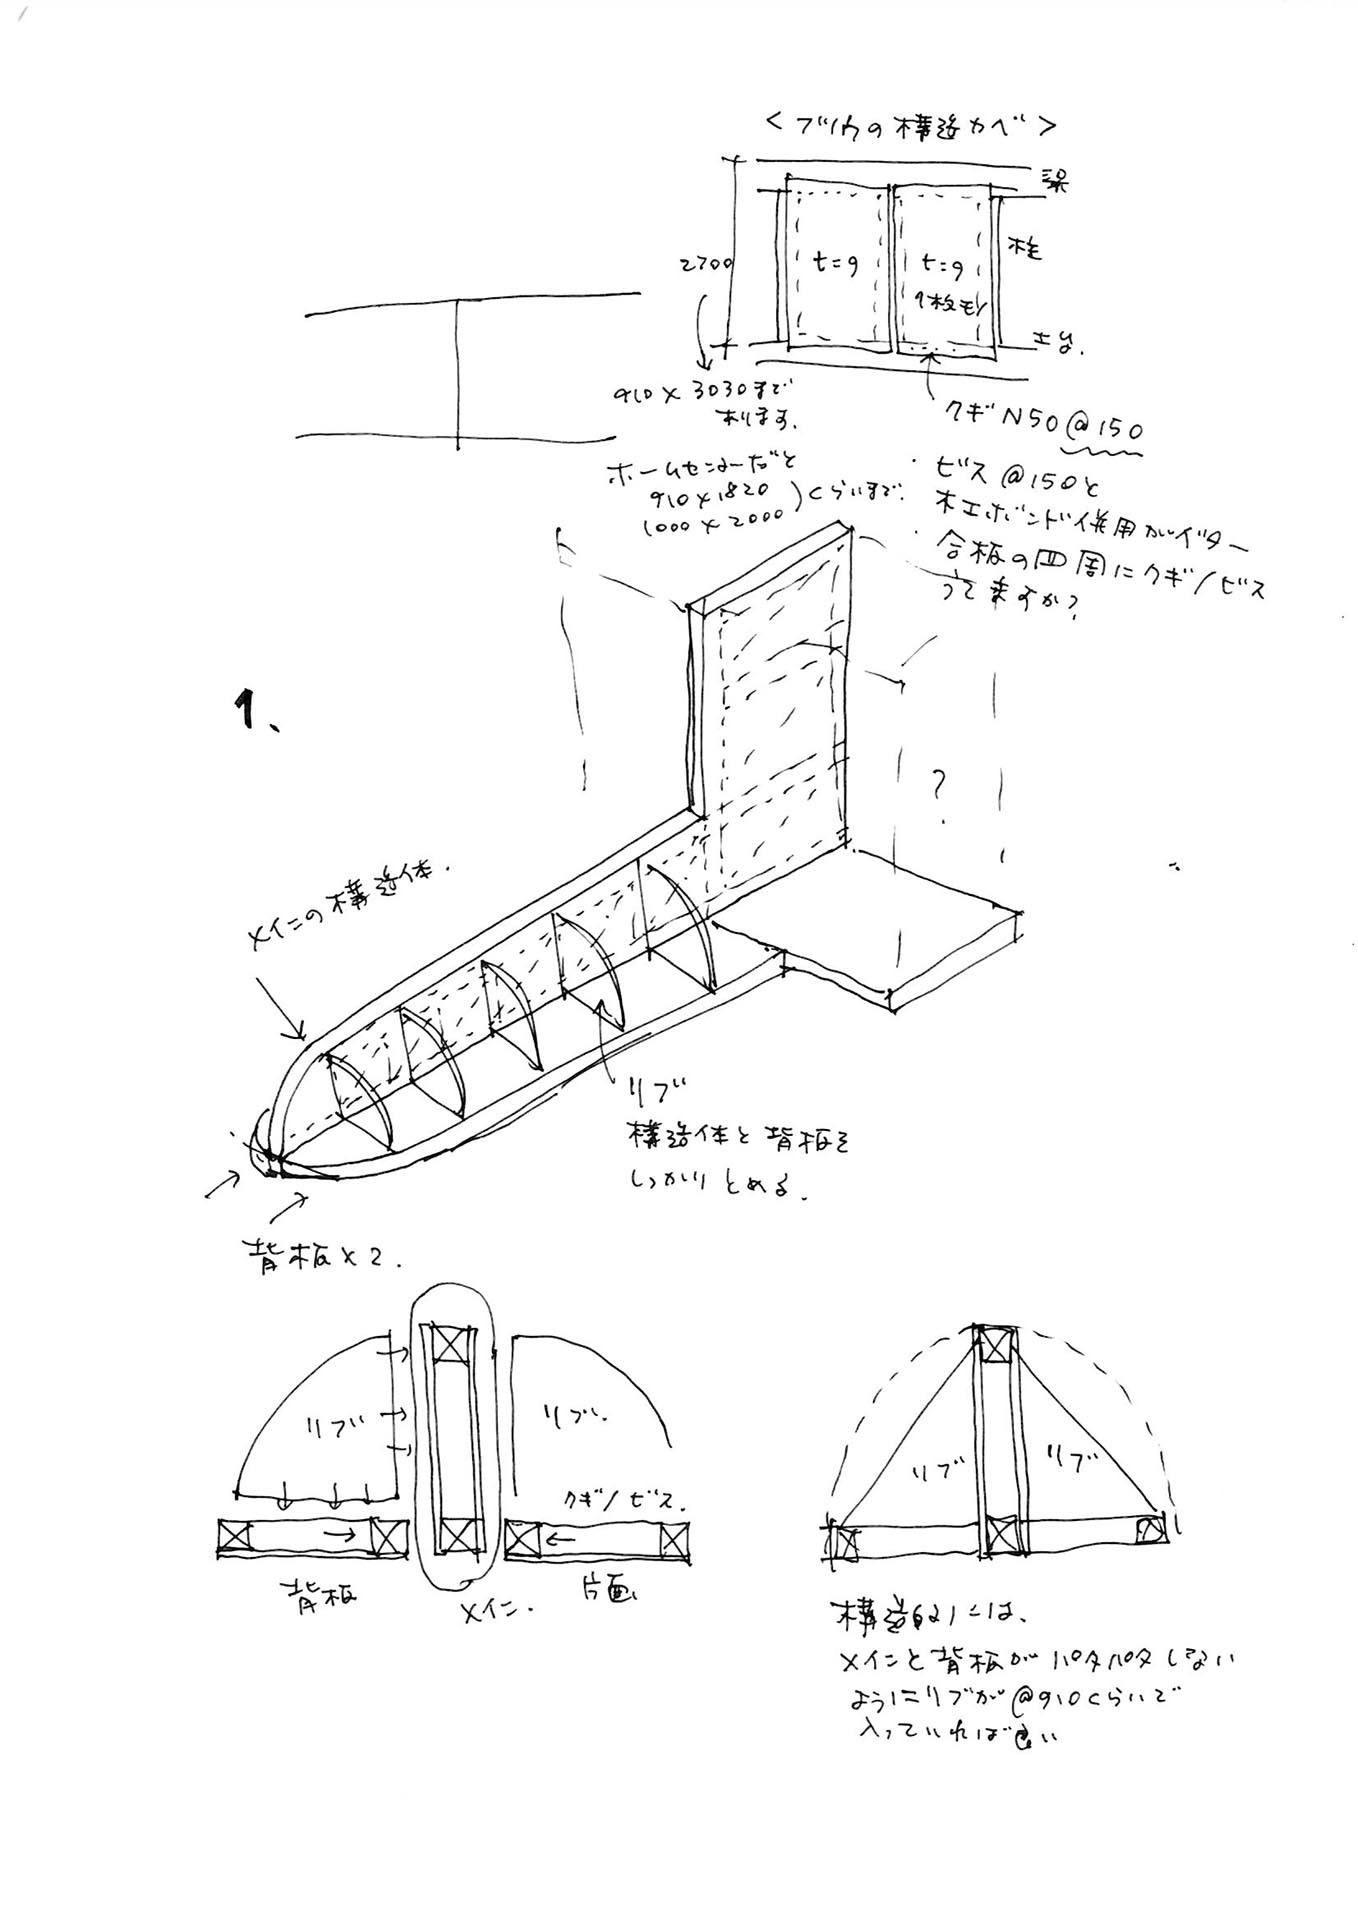 <フツウの構造カベ>
梁
柱
土台.
2700
t=9
t=9
1枚モノ
910×3030まで
あります.
クギN50@150
ホームセンターだと
910×1820
1000×2000
くらいまで.
・ビス@150と
木工ボンド併用がベター
・合板の四周にクギ/ビス
って来ますか?
1.
?
メインの構造体.
リブ
構造体と背板を
しっかりとめる.
背板×2.
リブ
リブ.
クギ/ビス.
背板
メイン.
片面
リブ
リブ
構造的には、
メインと背板がパタパタしない
ようにリブが@910くらいで
入っていれば良い